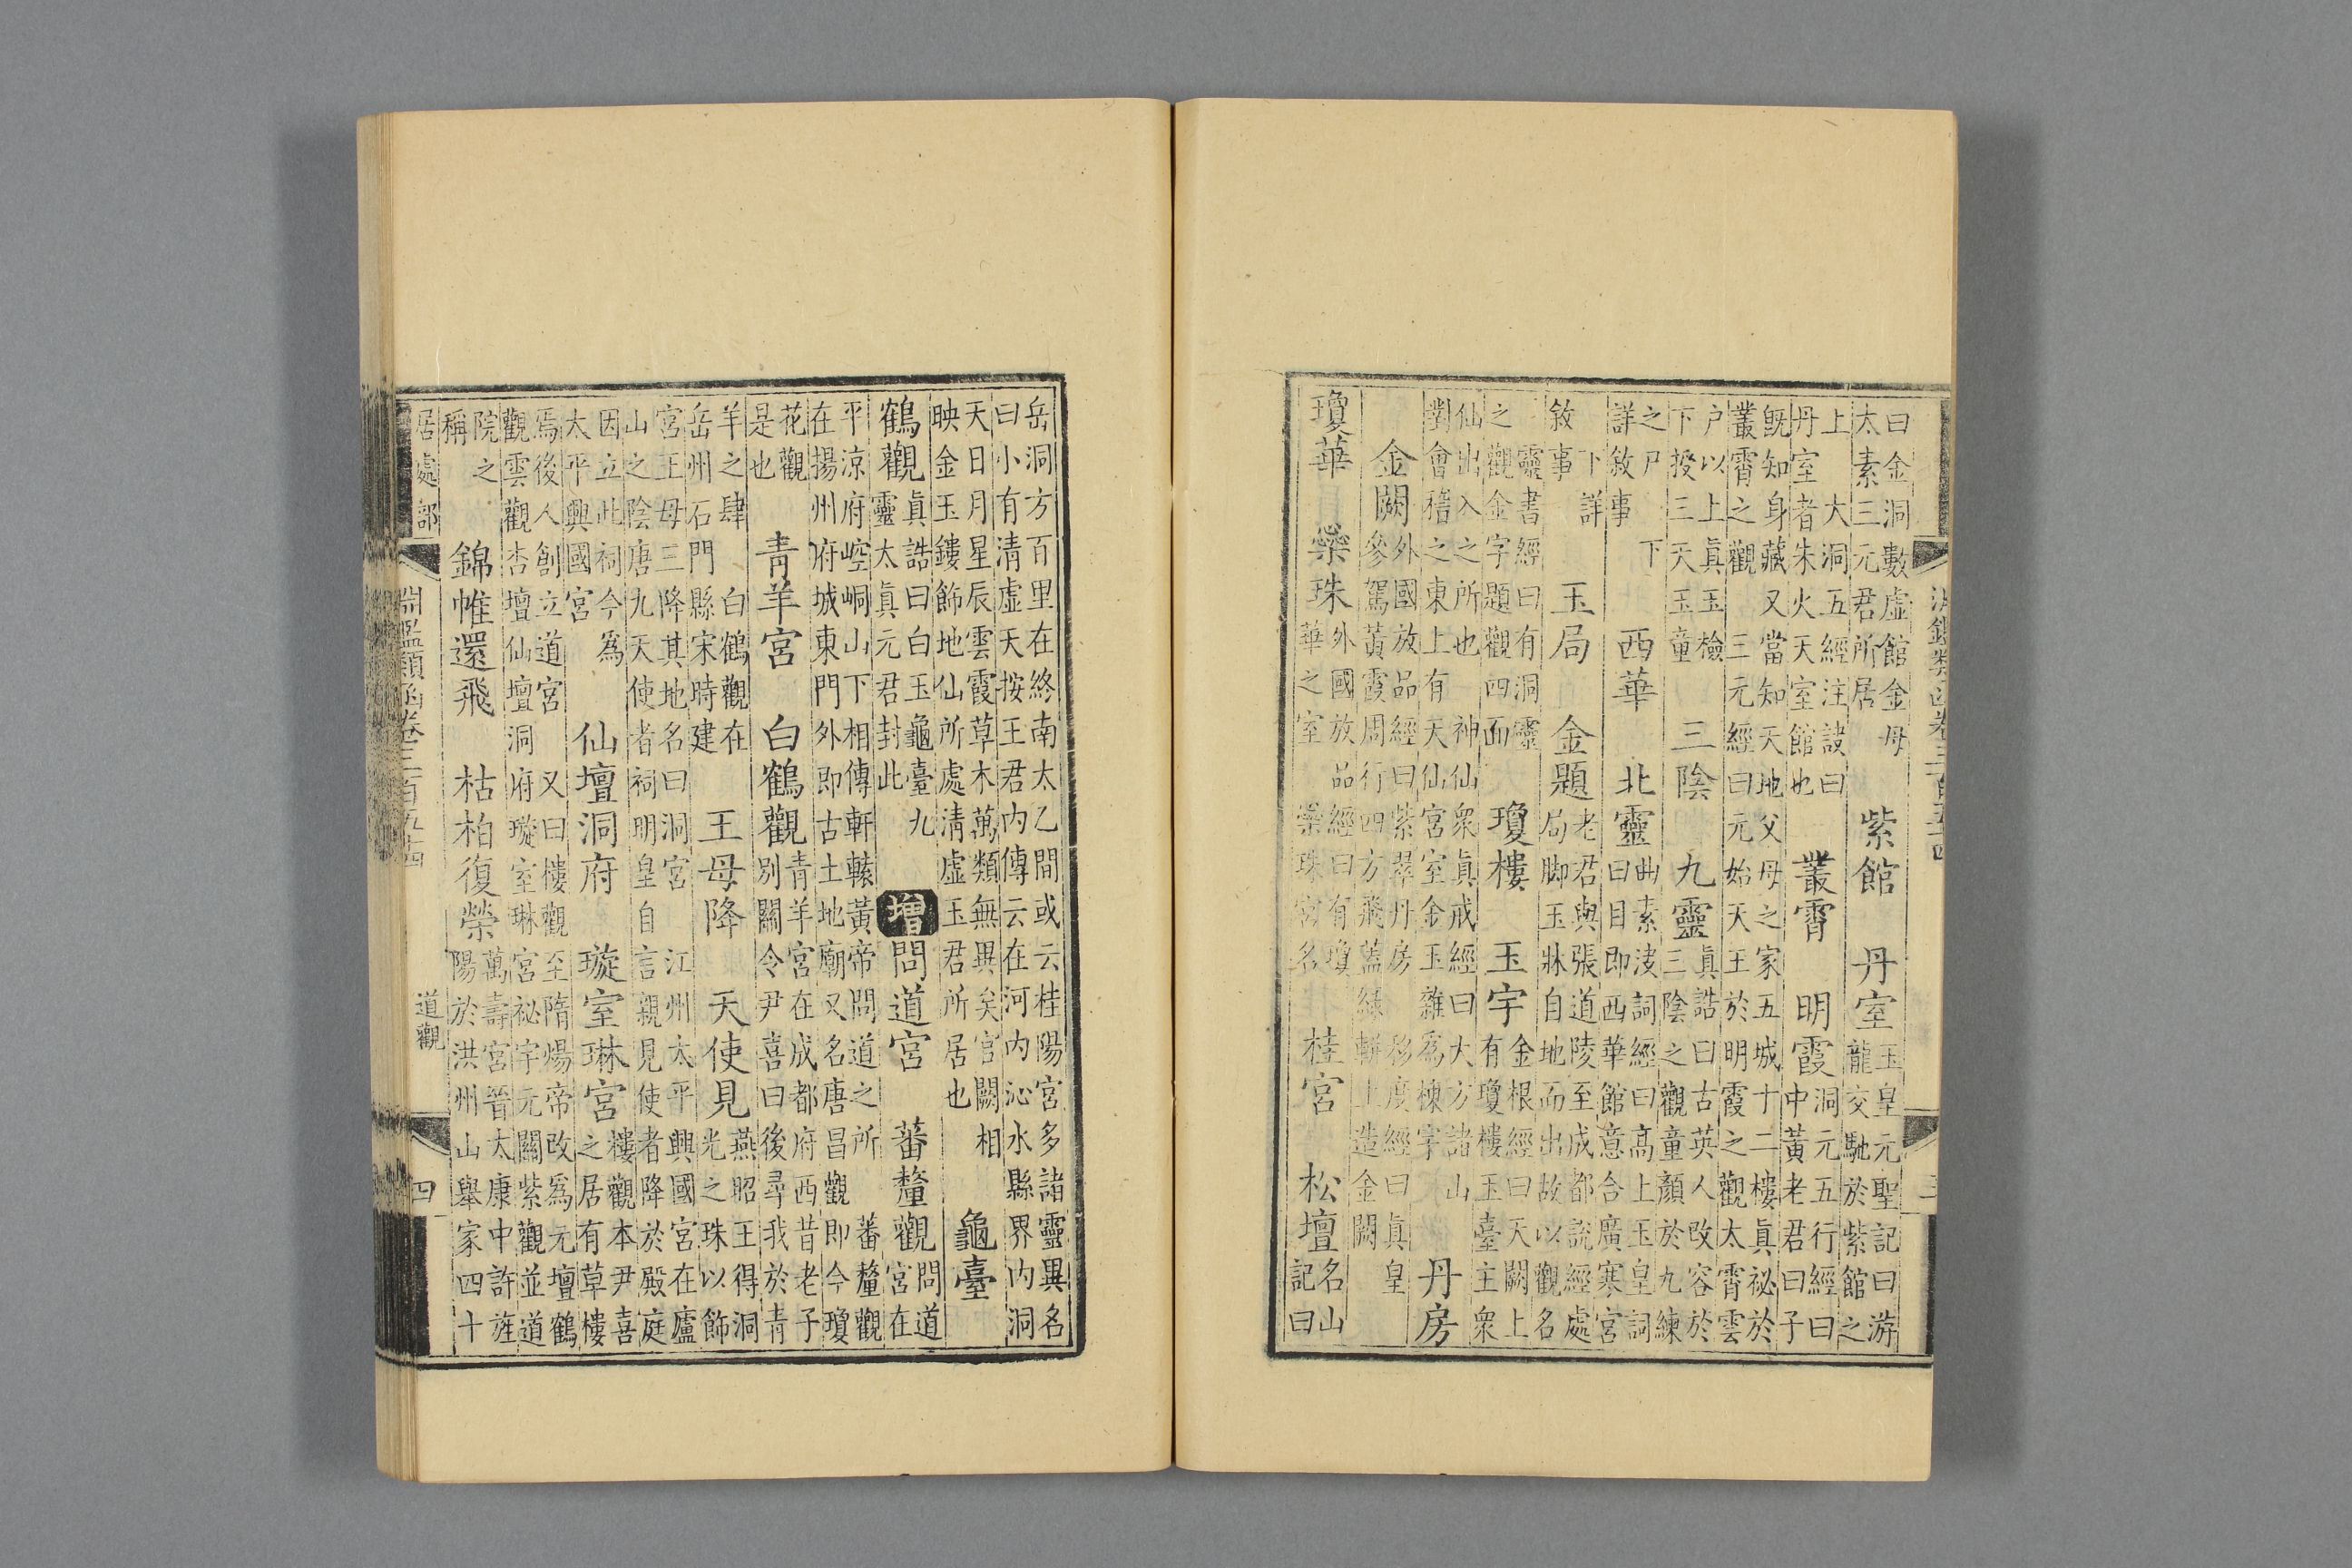 淵鑑類函卷三百五十四
三
曰金洞數虛館金母
太素三元君所居
紫館 丹室
玉皇元聖記曰游
龍交馳於紫館之
上 大洞五經注訣曰
丹室者朱火天室館也
叢霄 明霞
洞元五行經曰
中黃老君曰子
旣知身藏又當知天地父母之家五城十二樓眞祕於
叢霄之觀 三元經曰元始天王於明霞之觀太霄雲
戶以上眞玉檢
下授三天玉童
三陰 九靈
眞誥曰古英人改容於
三陰之觀童顏於九練
之尸 下
詳敘事
西華 北靈
曲素決詞經曰高上玉皇詞
曰目即西華館意合廣寒宮
下詳
敘事
玉局 金題
老君與張道陵至成都說經處
局脚玉牀自地而出故以觀名
靈書經曰有洞靈
之觀金字題觀四面
瓊樓 玉宇
金根經曰天闕上
有瓊樓玉臺主眾
仙出入之所也 神仙眾眞戒經曰大方諸山
對會稽之東上有天仙宮室金玉雜爲棟宇
丹房
金闕
外國放品經曰紫翠丹房 移度經曰眞皇
參駕黃霞周行四方飛蓋綠輧上造金闕
瓊華 蘂珠
外國放品經曰有瓊
華之室 蘂珠宮名
桂宮 松壇
名山
記曰
岳洞方百里在終南太乙間或云桂陽宮多諸靈異名
曰小有清虛天按王君內傳云在河內沁水縣界內洞
天日月星辰雲霞草木萬類無異矣宮闕相
映金玉鏤飾地仙所處清虛玉君所居也
龜臺
鶴觀
眞誥曰白玉龜臺九
靈太眞元君封此
增 問道宮 蕃釐觀
問道
宮在
平涼府崆峒山下相傳軒轅黃帝問道之所 蕃釐觀
在揚州府城東門外即古土地廟又名唐昌觀即今瓊
花觀
是也
青羊宮 白鶴觀
青羊宮在成都府西昔老子
別關令尹喜曰後尋我於青
羊之肆 白鶴觀在
岳州石門縣宋時建
王母降 天使見
燕昭王得洞
光之珠以飾
宮王母三降其地名曰洞宮 江州太平興國宮在廬
山之陰唐九天使者祠明皇自言親見使者降於殿庭
因立此祠今爲
太平興國宮
仙壇洞府 璇室琳宮
樓觀本尹喜
之居有草樓
焉後人創立道宮 又曰樓觀至隋煬帝改爲元壇鶴
觀雲觀杏壇仙壇洞府璇室琳宮祕宇元關紫觀並道
院之
稱
錦帷還飛 枯柏復榮
萬壽宮晉太康中許旌
陽於洪州山舉家四十
居處部 淵鑑類函卷三百五十四 道觀 四